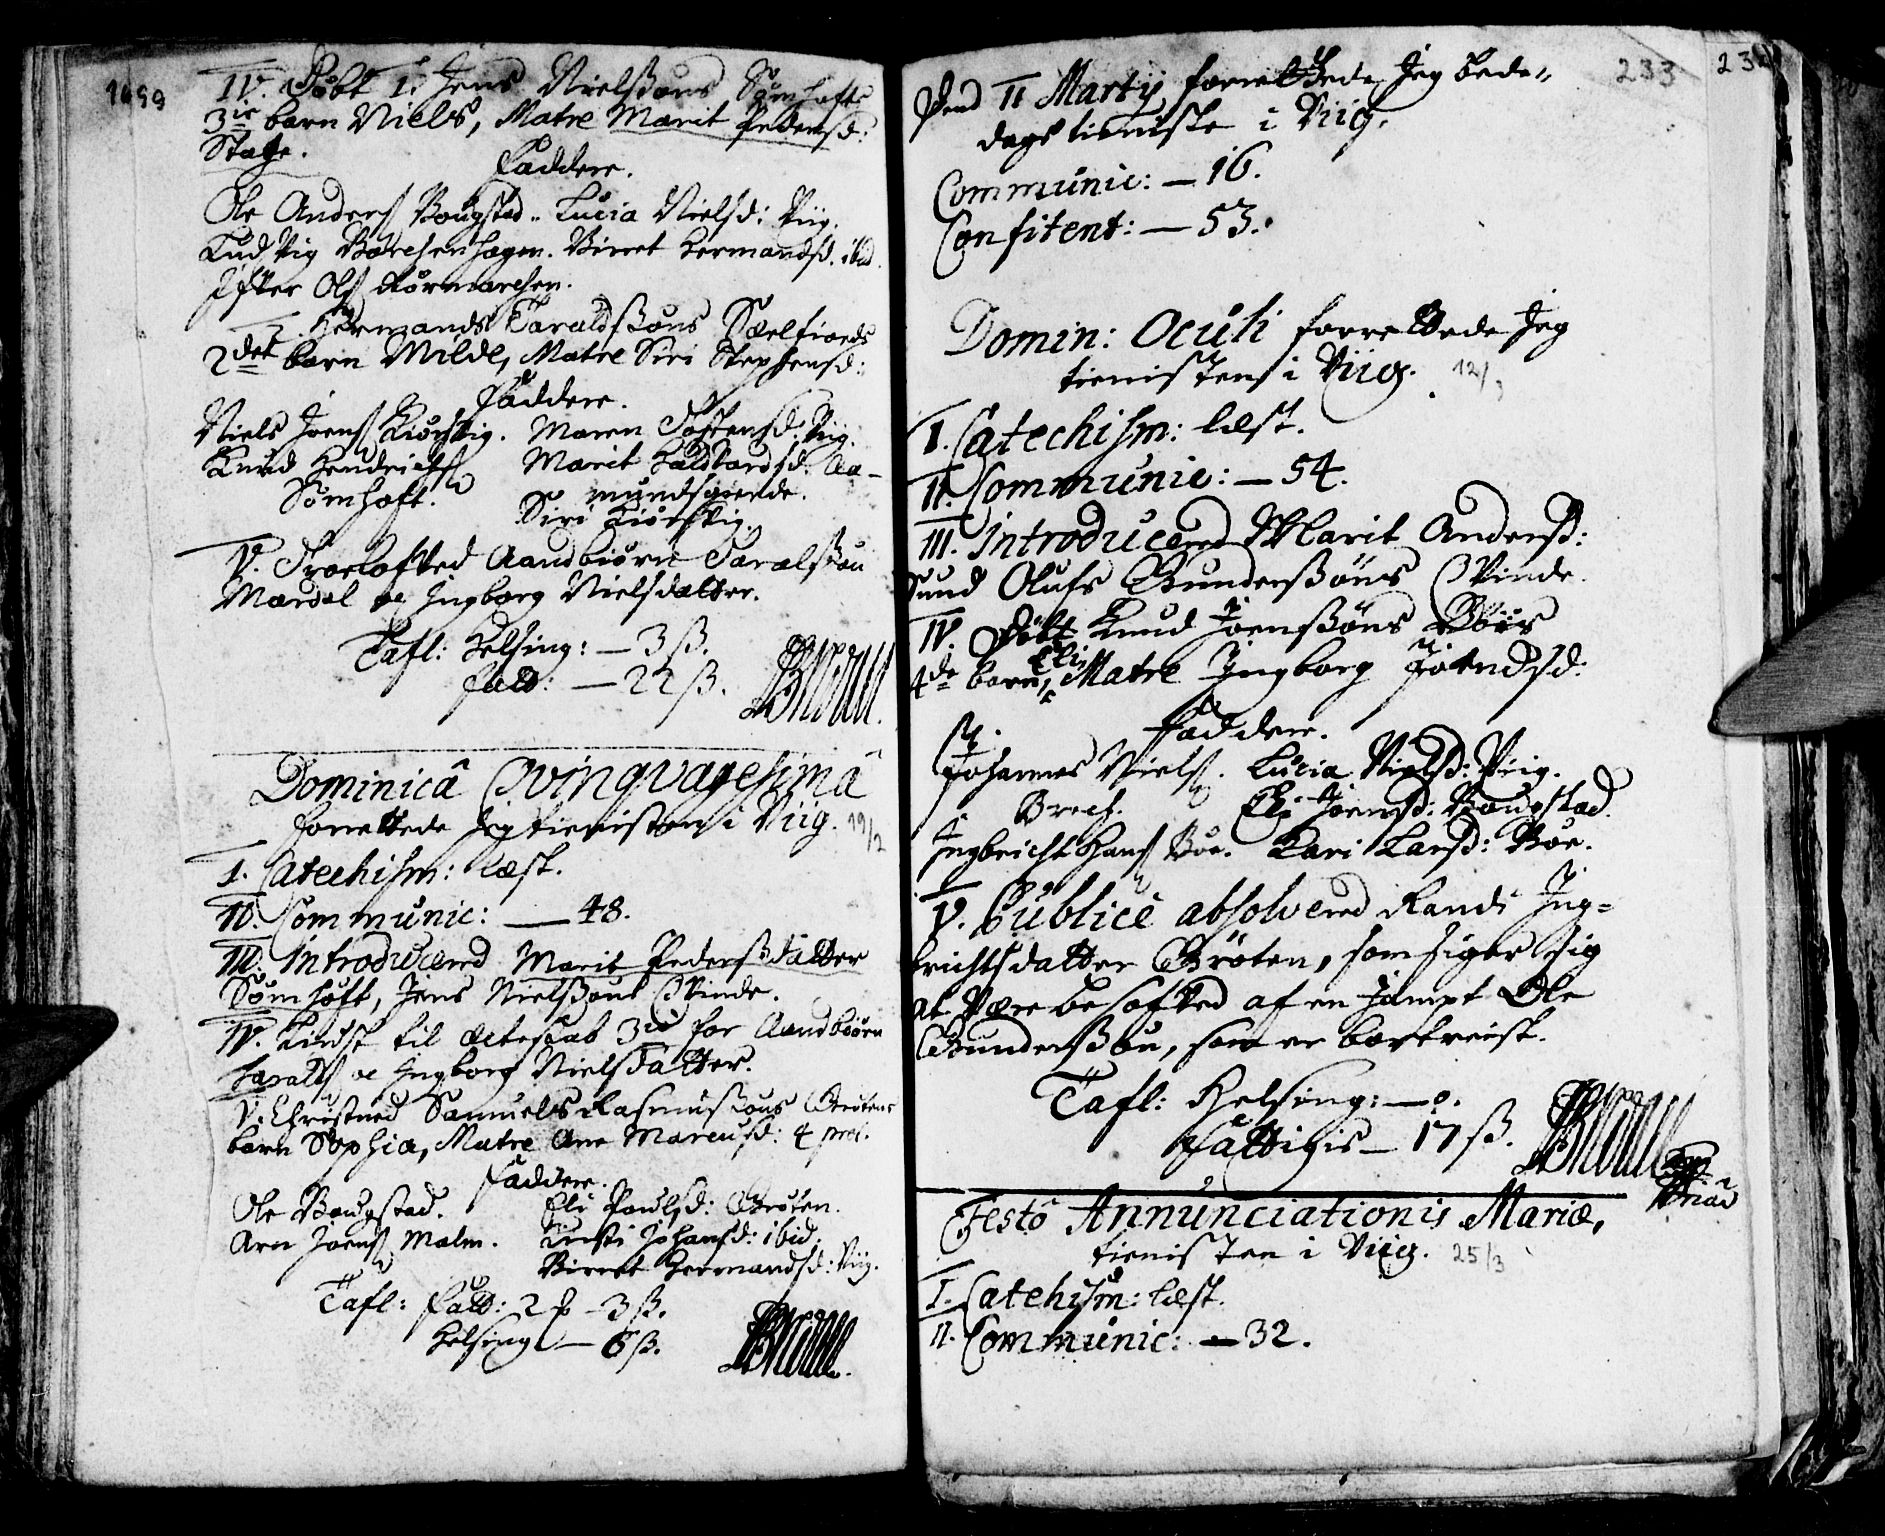 1699
IV. Döbt 1. Jens Nielssøns Sømhofts
3ie barn Niels, Matre Marit Pedersd:
Faddere.
Ole Anders Bougstad. Lucia Nielsd: Viig.
Ludvig Borchenhagen. Birret Hermandsd. ibid.
Ole
2. Hermands Taraldssøns Sælfiords
2det barn Milde, Matre Siri Stephensd:
Faddere.
Niels Joens Kiørsvig. Maren Viig.
Knud Hendrichs Marit Haldvardsd: Aa-
Sømhoft. mundsgierde.
Siri Kiørsvig.
V. Troelofved Aandbiørn Taralssøn
Mærdal oc Ingborg Nielsdatter.
Tafl: Helsing: — 3 ß.
Fatt: — 22 ß.
Dominicâ Qvinqvagesimâ
forrettede Jeg tienisten i Viig. 19/2
I. Catechism: læst.
II. Communic: — 48.
III. Introducered Marit Pederssdatter
Sømhoft, Jens Nielssøns Qvinde.
IV. Liust til ectescab 3ie for Aandbiørn
Taralds oc Ingborg Nielsdatter.
V. Christned Samuels Rasmussøns Brøtens
barn Sophia, Matre Ane Marcusd: 4
Faddere.
Ole Bougstad. Eli Poulsd: Brøten.
Arn Joens Malm. Kirsti Johansd: ibid.
Birret Hermandsd: Viig.
Tafl: Fatt: 2 — 3 ß.
Helsing — 6 ß.
233
Dend 11 Martij forrettede Jeg bede-
dags tieniste i Viig.
Communic: — 16.
Confitent: — 53.
Domin: Oculi forrettede Jeg
tienisten i Viig. 12/3
I. Catechism: læst.
II. Communic: — 54.
III. Introducered Marit Andersd:
Sund Olufs Gunderssøns Qvinde.
IV. Döbt Knud Joenssøns
4de barn, Eli, Matre Ingborg
Faddere.
Johannes Niels. Lucia Nielsd: Viig.
Eli Joensd: Bougstad.
Ingbricht Hans Boe. Kari Larsd: Boe.
V. Publicè absolvered Randi Ing-
brichtsdatter Brøten, som siger sig
at være besofved af en Jampt Ole
Gunderssøn, som er bortreist.
Tafl: Helsing: — 0.
Fattigis — 17 ß.
Festo Annunciationis Mariæ,
tienisten i Viig. 25/3
I. Catehism: læst.
II. Communic: — 32.